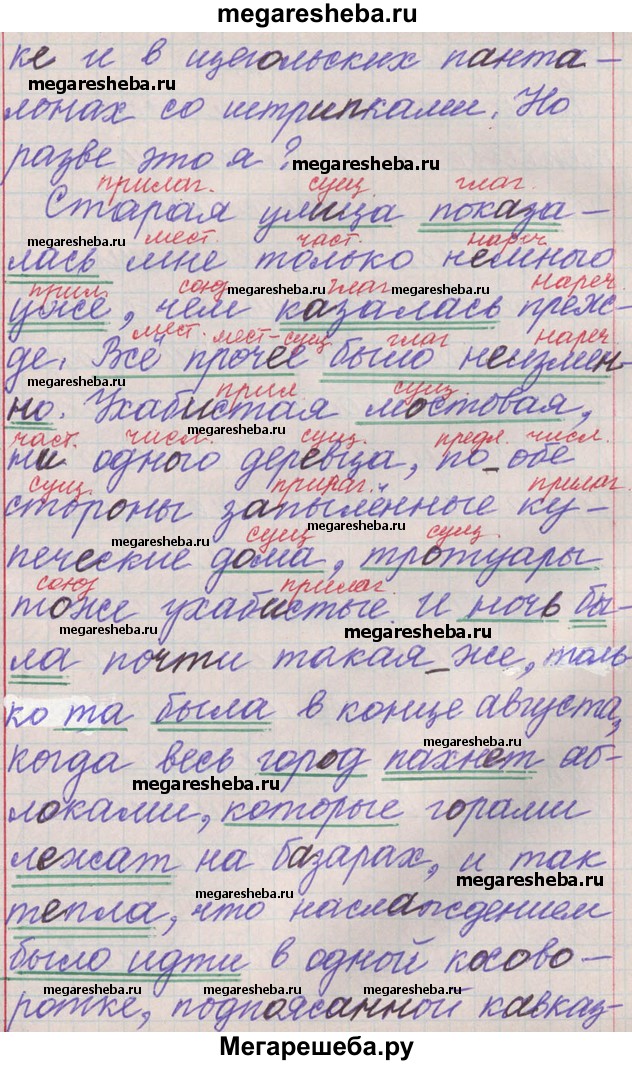 megaresheba.ru
ке и в щегольских панта-
megaresheba.ru megaresheba.ru
лонах со штрипками. Но
разве это я? megaresheba.ru
прилаг. сущ глаг.
Старая улица показа-
megaresheba.ru мест. част. нареч
лась мне только немного
прил союз megaresheba.ru глаг megaresheba.ru нареч
уже, чем казалась преж-
мест. мест-сущ глаг нареч.
де. Всё прочее было неизмен-
прил сущ.
но. Ухабистая мостовая,
megaresheba.ru
част. числ. сущ. предл. числ.
ни одного деревца, по обе
сущ. прилаг. прилаг.
стороны запылённые ку-
megaresheba.ru сущ сущ.
печеские дома, тротуары
союз прилаг.
тоже ухабистые И ночь бы-
megaresheba.ru megaresheba.ru
ла почти такая же, толь
ко та была в конце августа,
megaresheba.ru
когда весь город пахнет яб-
megaresheba.ru
локами, которые горами
лежат на базарах, и так
megaresheba.ru megaresheba.ru
тепла, что наслаждением
было идти в одной косово-
megaresheba.ru megaresheba.ru megaresheba.ru
ротке, подпоясанной кавказ-
Мегарешеба.ру